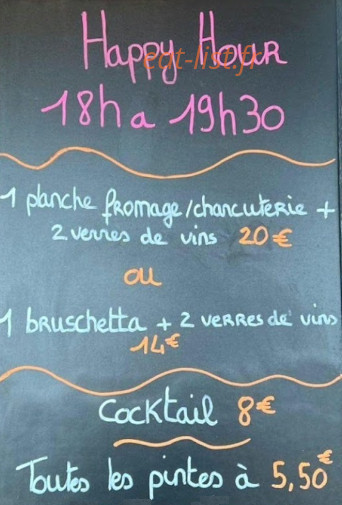 Happy Hour
eat-list.fr
18h a 19h30
1 planche fromage/charcuterie +
2 verres de vins 20€
ou
1 bruschetta + 2 verres de vins
14€
Cocktail 8€
Toutes les pintes à 5,50€